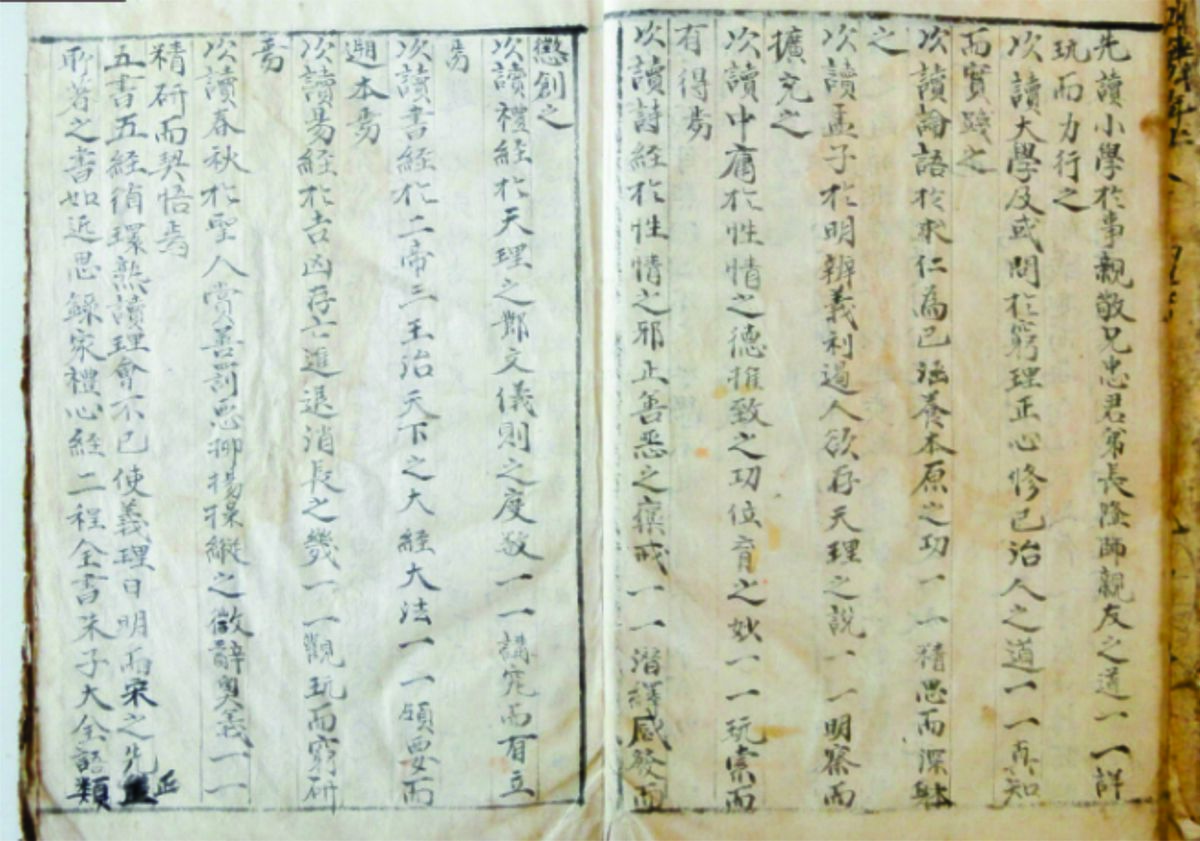 先讀小學於事親敬兄忠君弟長隆師親友之道一一詳
玩而力行之
次讀大學及或問於窮理正心修己治人之道一一真知
而實踐之
次讀論語於求仁為己涵養本原之功一一精思而深體
之
次讀孟子於明辨義利遏人欲存天理之說一一明察而
擴充之
次讀中庸於性情之德推致之功位育之妙一一玩索而
有得焉
次讀詩經於性情之邪正善惡之褒戒一一潛繹感發而
懲創之
次讀禮經於天理之節文儀則之度數一一講究而有立
焉
次讀書經於二帝三王治天下之大經大法一一領要而
遡本焉
次讀易經於吉凶存亡進退消長之幾一一觀玩而窮研
焉
次讀春秋於聖人賞善罰惡抑揚操縱之微辭奧義一一
精研而契悟焉
五書五經循環熟讀理會不已使義理日明而宋之先正
所著之書如近思錄家禮心經二程全書朱子大全語類